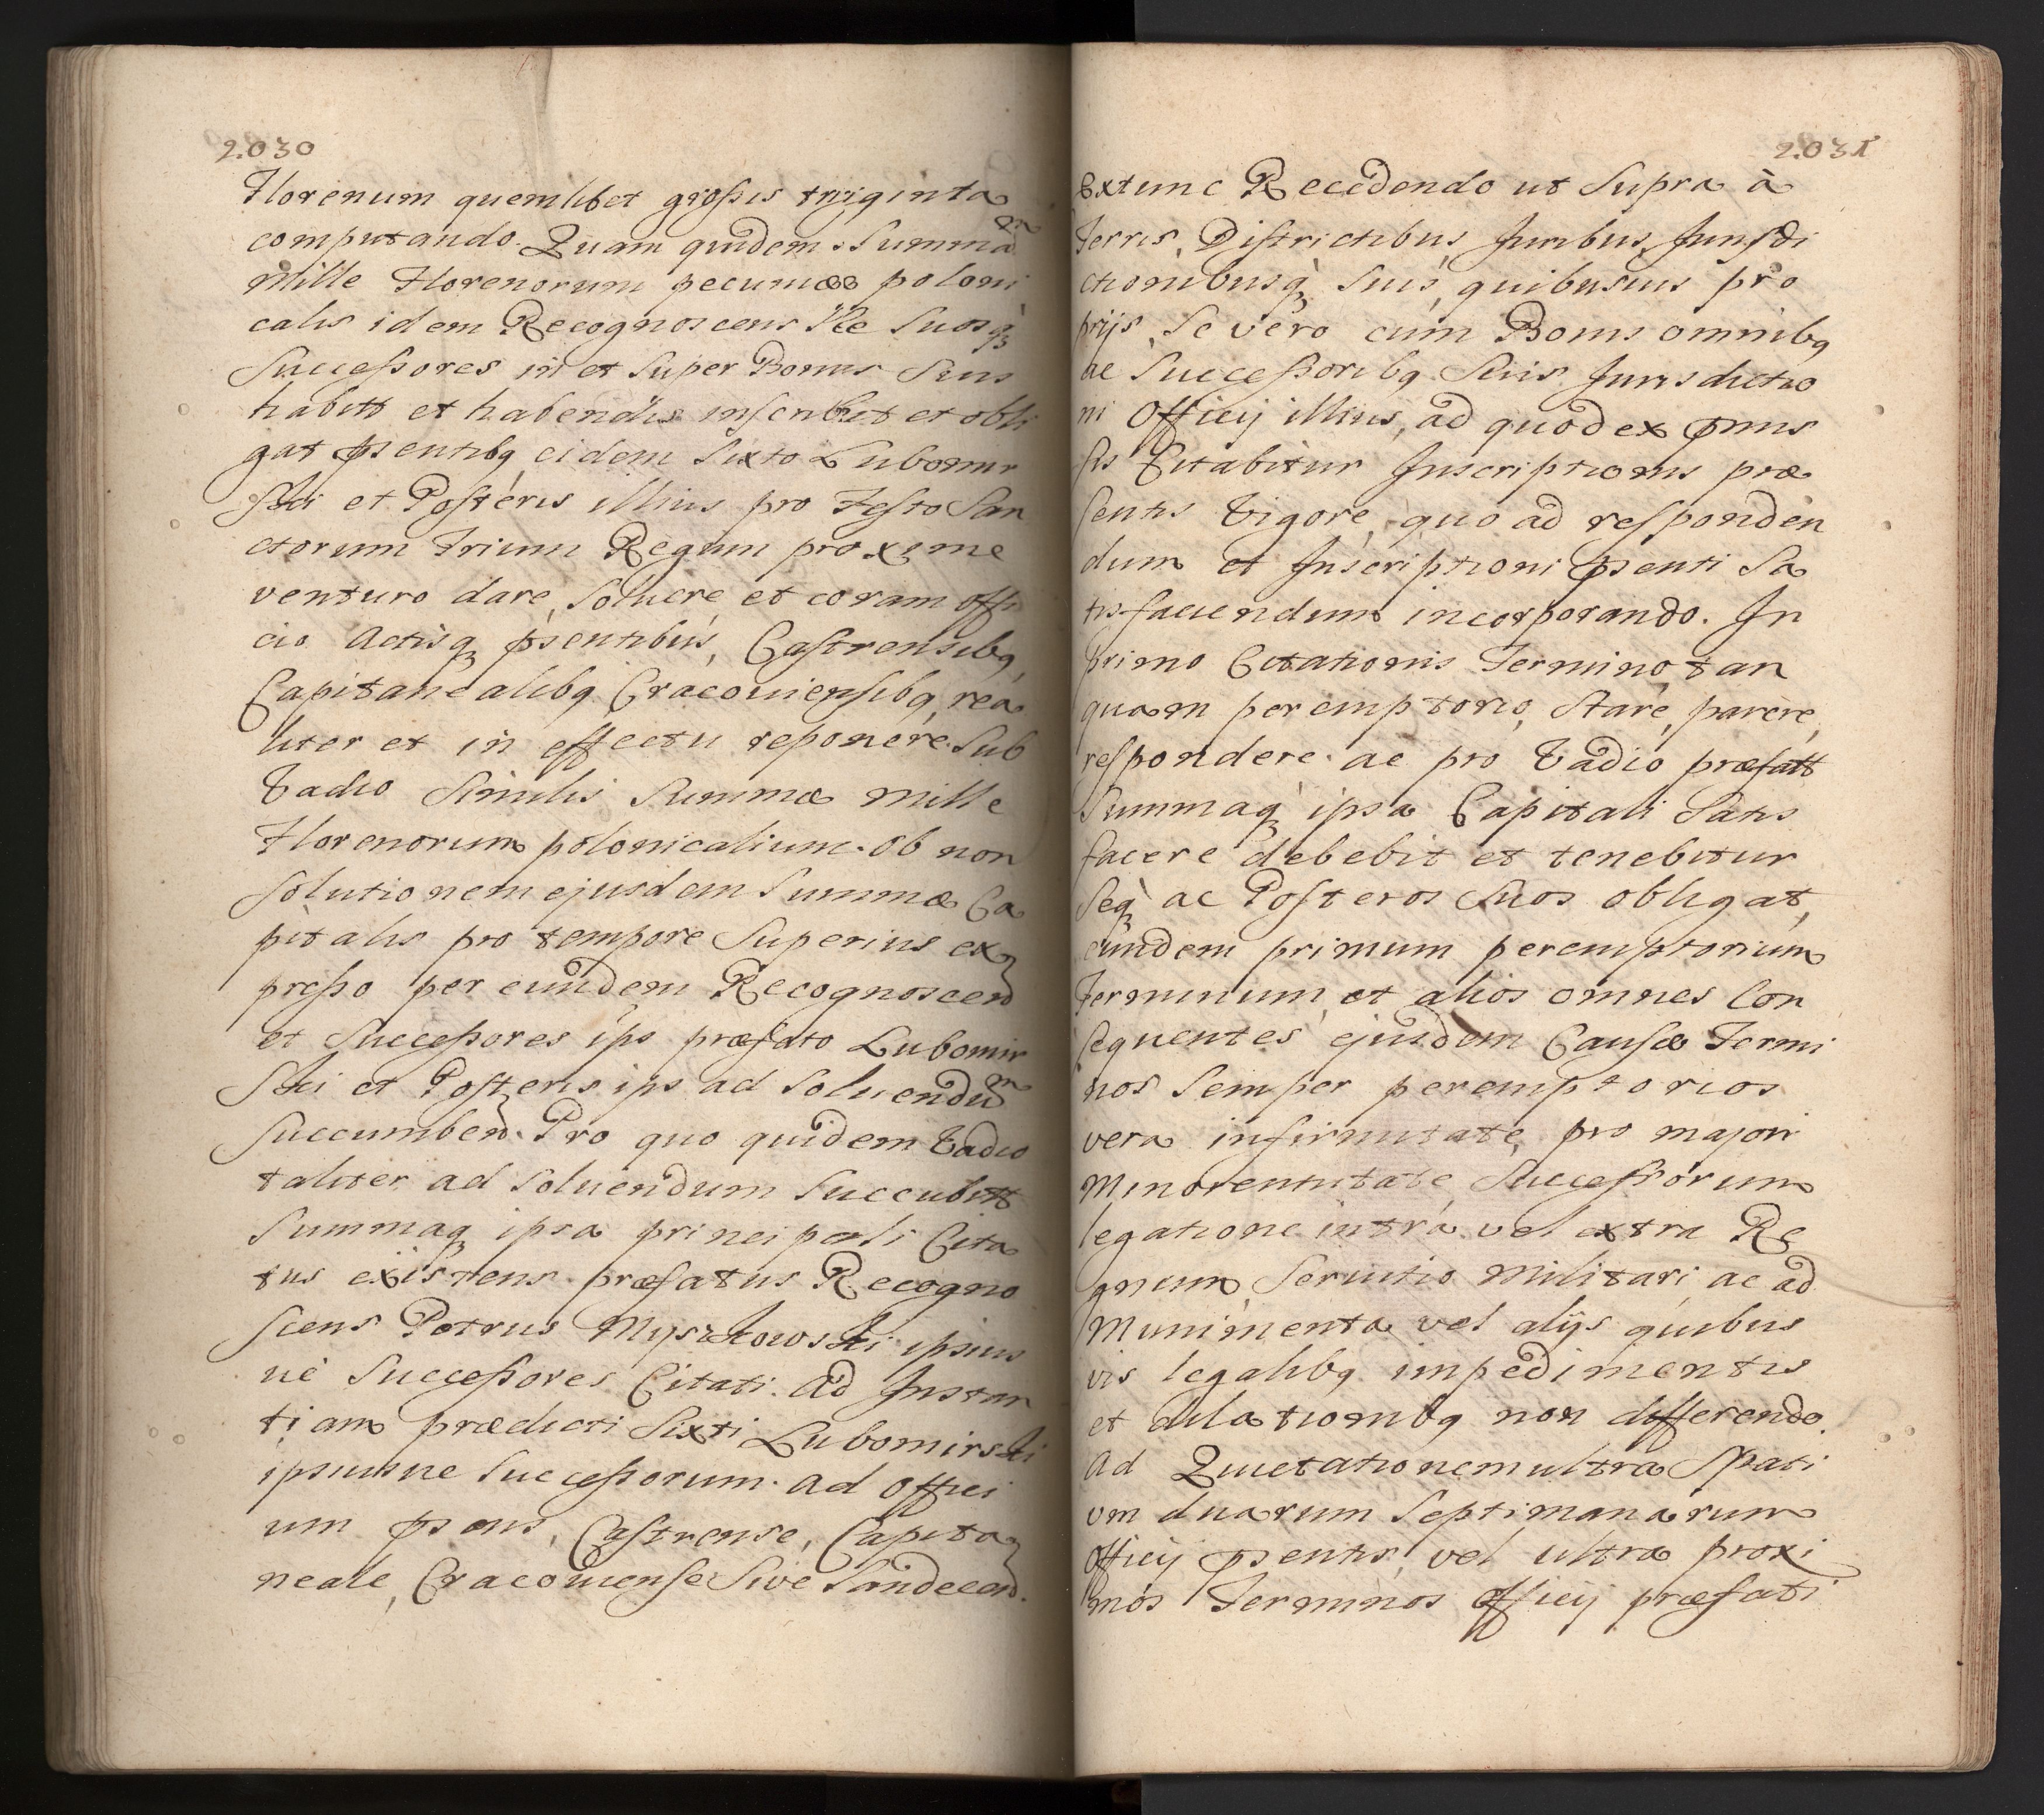 2.030
Florenum quemlibet großis triginta
computando. Quam quidem Summam
Mille Florenorum pecuniæ poloni
calis idem Recognoscens Se Suosq
Succeßores in et Super Bonis Suis
habitt et habendis inscribit et obli
gat psentibq eidem Sixto Lubomir
ski et Posteris illius pro Festo San
ctorum Trium Regum proxime
venturo dare, Soluere, et coram offi
cio Actisq psentibus, Castrensibq,
Capitanealibq Cracouiensibq, rea
liter et in effectu reponere. Sub
Vadio Similis Summæ Mille
Florenorum polonicalium. Ob non
Solutionem ejusdem Summæ Ca
pitalis pro tempore Superius ex
preßo per eundem Recognoscen
et Succeßores ips præfato Lubomir
ski et Posteris ips ad Soluendum
Succumben. Pro quo quidem Vadio
taliter ad Soluendum Succubitt
Summaq ipsa principali Cita
tus existens præfatus Recogno
scens Petrus Myszkowski ipsius
ue Succeßores Citati. Ad Instan
tiam prædicti Sixti Lubomirski
ipsiusue Succeßorum. Ad Offici
um psens, Castrense, Capita
neale, Cracouiense Siue Sandecen.
2.031
Extunc Recedendo ut Supra à
Terris, Districtibus, Juribus, Jurisdi
ctionibusq Suis, quibusuis pro
prijs, Se vero cum Bonis omnibq
ac Succeßoribq Suis Jurisdictio
ni Officij illius, ad quod ex pmis
sis Citabitur Inscriptionis præ
sentis Vigore, quo ad responden
dum et Inscriptioni psenti Sa
tisfaciendum incorporando. In
primo Citationis Termino, tan
quam peremptorio, Stare, parere,
respondere ac pro Vadio præfatt
Summaq ipsa Capitali Satis
facere debebit et tenebitur
Seq ac Posteros Suos obligat,
eundem primum peremptorium
Terminum, et alios omnes Con
sequentes ejusdem Causæ Termi
nos Semper peremptorios
vera infirmitate, pro majori
Minorennitate Succeßorum
legatione intra vel extra Re
gnum, Seruitio Militari, ac ad
Munimenta vel alijs quibus
vis legalibq impedimentis
et dilationibq non differendo.
Ad Quietationem ultra Spati
um duarum Septimanarum
Officij psentis, vel ultra proxi
mos Terminos Officij præfati